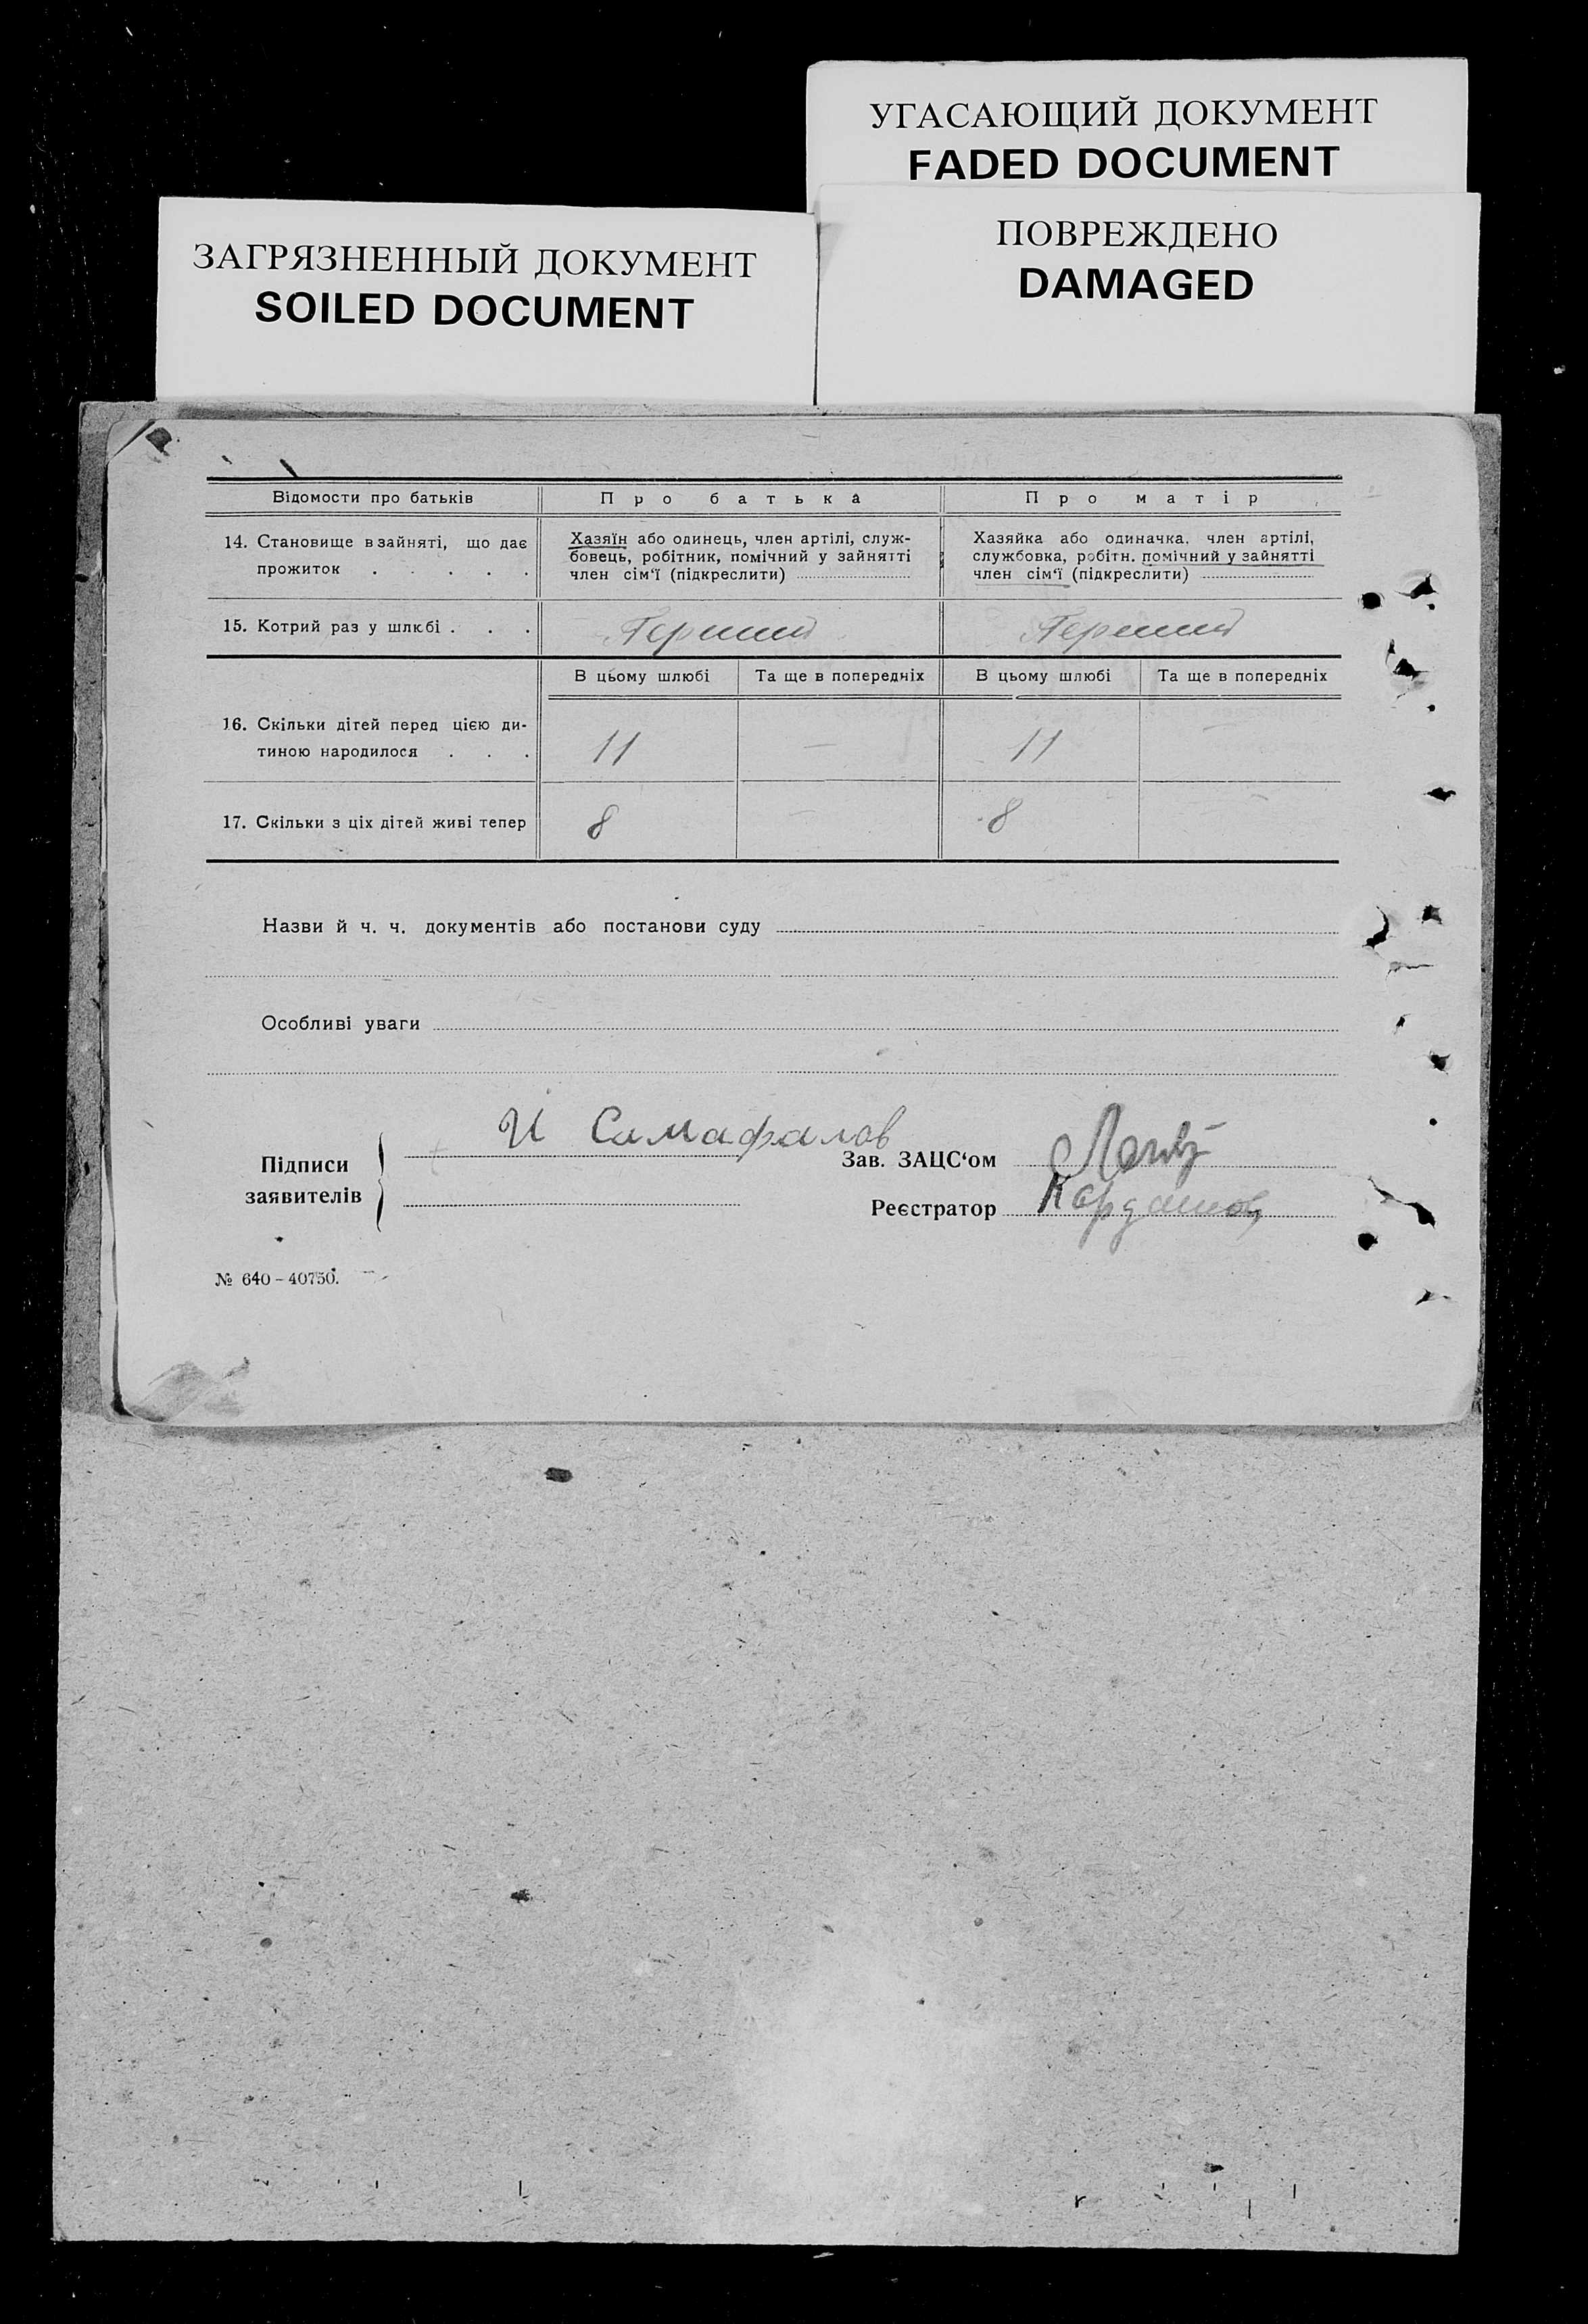 УГАСАЮЩИЙ ДОКУМЕНТ
FADED DOCUMENT
ПОВРЕЖДЕНО
DAMAGED
ЗАГРЯЗНЕННЫЙ ДОКУМЕНТ
SOILED DOCUMENT
Відомости про батьків
Про батька
Про матір
14. Становище в зайняті, що дає
прожиток . . . . .
Хазяїн або одинець, член артілі, служ-
бовець, робітник, помічний у зайнятті
член сім‘ї (підкреслити)
Хазяйка або одиначка, член артілі,
службовка, робітн. помічний у зайнятті
член сім‘ї (підкреслити)
15. Котрий раз у шлюбі . . .
Перший
Перший
В цьому шлюбі
Та ще в попередніх
В цьому шлюбі
Та ще в попередніх
16. Скільки дітей перед цією ди-
тиною народилося . . .
11
—
11
—
17. Скільки з ціх дітей живі тепер
8
—
8
—
Назви й ч. ч. документів або постанови суду
Особливі уваги
Підписи
заявителів
И Самафалов
Зав. ЗАЦС‘ом
Реєстратор
№ 640 – 40750.